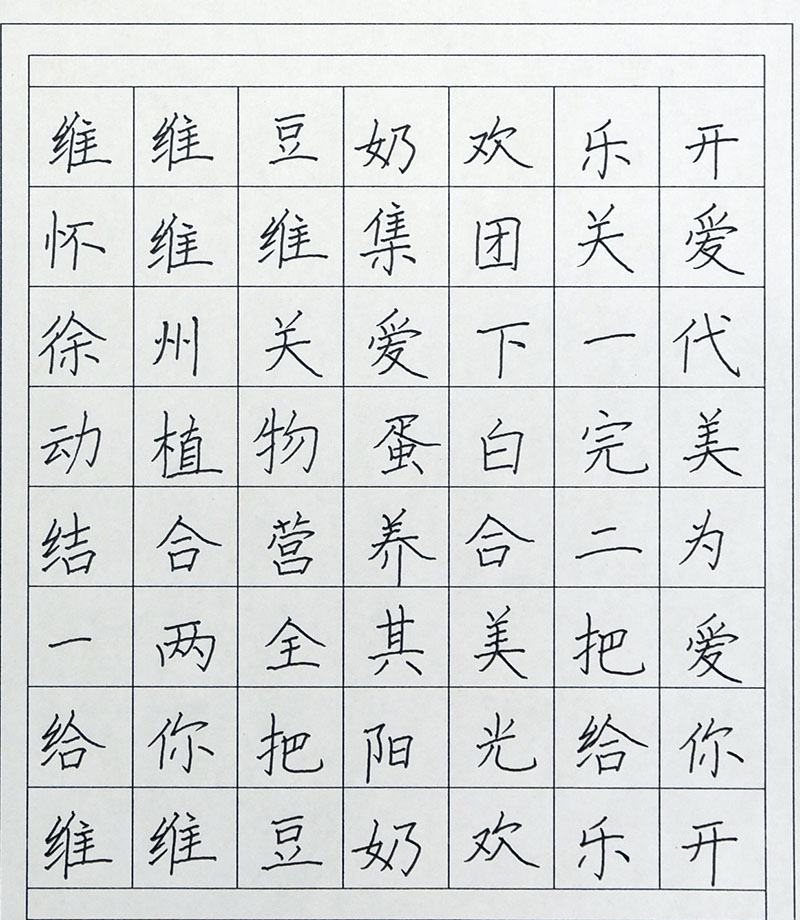 维维豆奶欢乐开
怀维维集团关爱
徐州关爱下一代
动植物蛋白完美
结合营养合二为
一两全其美把爱
给你把阳光给你
维维豆奶欢乐开